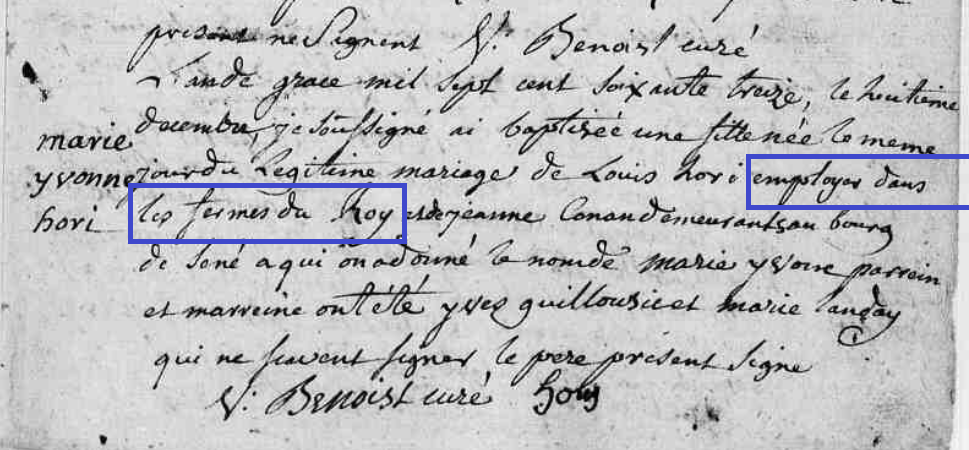 present ne Signent V. Benoist curé
L'an de grace mil sept cent soixante treize, le huitieme
marie decembre, je soussigné ai baptiséé une fille néé le meme
yvonne jour du Legitime mariage de Louis hori employer dans
hori les fermes du Roy et de jeanne Conan demeurants au bourg
de séné a qui on a donné le nom de marie yvone parrein
et marreine ont été yves guillousic et marie landay
qui ne scavent signer le pere present signe
V. Benoist curé hory